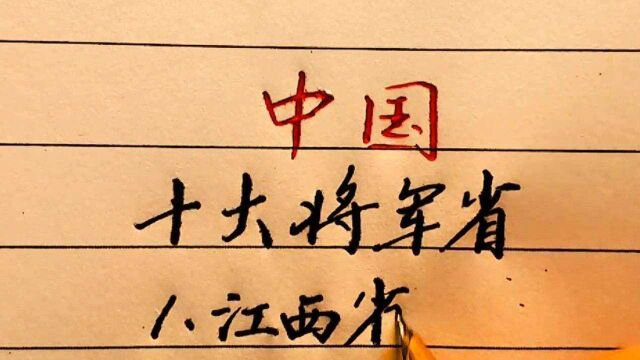 中国
十大将军省
1、江西省